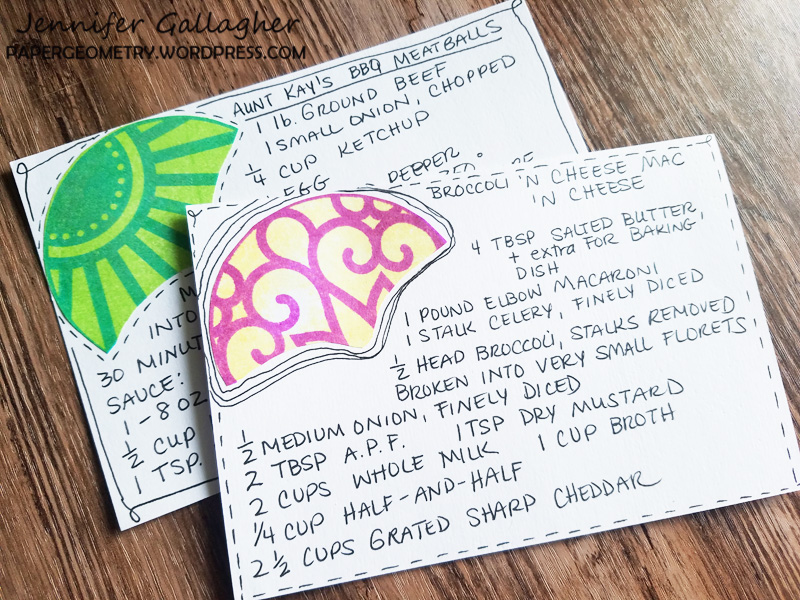 Jennifer Gallagher
PAPERGEOMETRY.WORDPRESS.COM
AUNT KAY'S BBQ MEATBALLS
1 lb. GROUND BEEF
1 SMALL ONION, CHOPPED
1/4 CUP KETCHUP
EGG
DEEPER
INTO
30 MINUT
SAUCE:
1-8 OZ
1/2 CUP
1 TSP.
BROCCOLI 'N CHEESE MAC
'N CHEESE
4 TBSP SALTED BUTTER,
+ extra FOR BAKING,
DISH
1 POUND ELBOW MACARONI
1 STALK CELERY, FINELY DICED
1/2 HEAD BROCCOLI, STALKS REMOVED
BROKEN INTO VERY SMALL FLORETS
1/2 MEDIUM ONION, FINELY DICED
2 TBSP A.P.F. 1 TSP DRY MUSTARD
2 CUPS WHOLE MILK 1 CUP BROTH
1/4 CUP HALF-AND-HALF
2 1/2 CUPS GRATED SHARP CHEDDAR